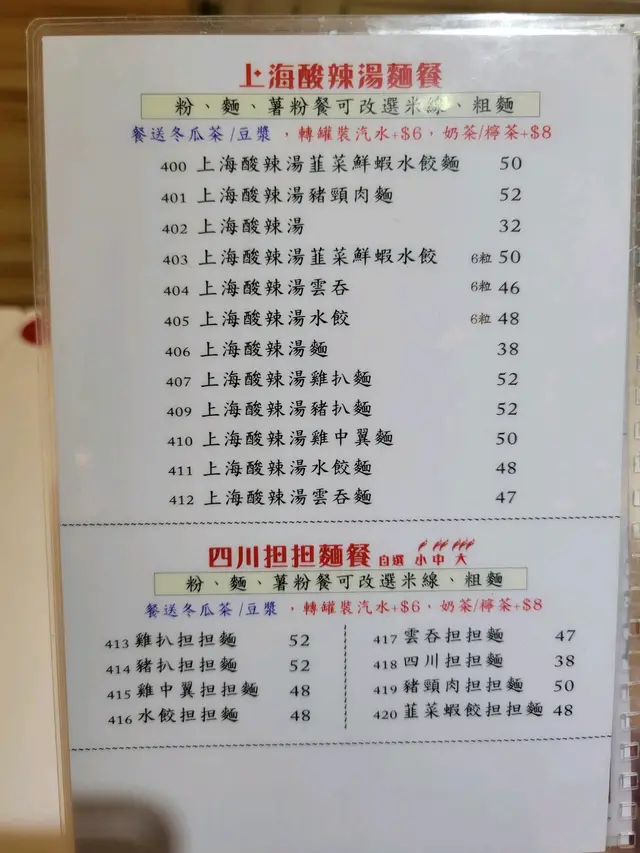 上海酸辣湯麵餐
粉、麵、薯粉餐可改選米線、粗麵
餐送冬瓜茶/豆漿，轉罐裝汽水+$6，奶茶/檸茶+$8
400 上海酸辣湯韮菜鮮蝦水餃麵 50
401 上海酸辣湯豬頸肉麵 52
402 上海酸辣湯 32
403 上海酸辣湯韮菜鮮蝦水餃 6粒 50
404 上海酸辣湯雲吞 6粒 46
405 上海酸辣湯水餃 6粒 48
406 上海酸辣湯麵 38
407 上海酸辣湯雞扒麵 52
409 上海酸辣湯豬扒麵 52
410 上海酸辣湯雞中翼麵 50
411 上海酸辣湯水餃麵 48
412 上海酸辣湯雲吞麵 47
四川担担麵餐 自選 小 中 大
粉、麵、薯粉餐可改選米線、粗麵
餐送冬瓜茶/豆漿，轉罐裝汽水+$6，奶茶/檸茶+$8
413 雞扒担担麵 52
414 豬扒担担麵 52
415 雞中翼担担麵 48
416 水餃担担麵 48
417 雲吞担担麵 47
418 四川担担麵 38
419 豬頸肉担担麵 50
420 韮菜蝦餃担担麵 48